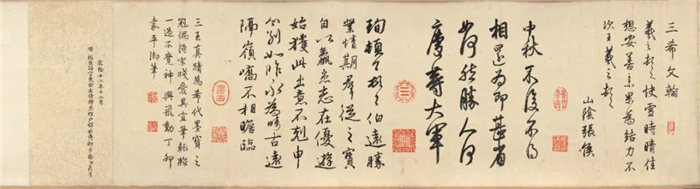 三希文翰
羲之頓首快雪時晴佳
想安善未果為結力不
次王羲之頓首
山陰張侯
中秋不復不得
相還為即甚省
如何然勝人何
慶等大軍
珣頓首頓首伯遠勝
業情期群從之寶
自以羸患志在優游
始獲此出意不剋申
分別如昨永為疇古遠
隔嶺嶠不相瞻臨
三王真蹟為希代墨寶之
冠偶愛其宜筆臨
一過不覺神與動丁卯
嘉平御筆
乾隆十二年十二月